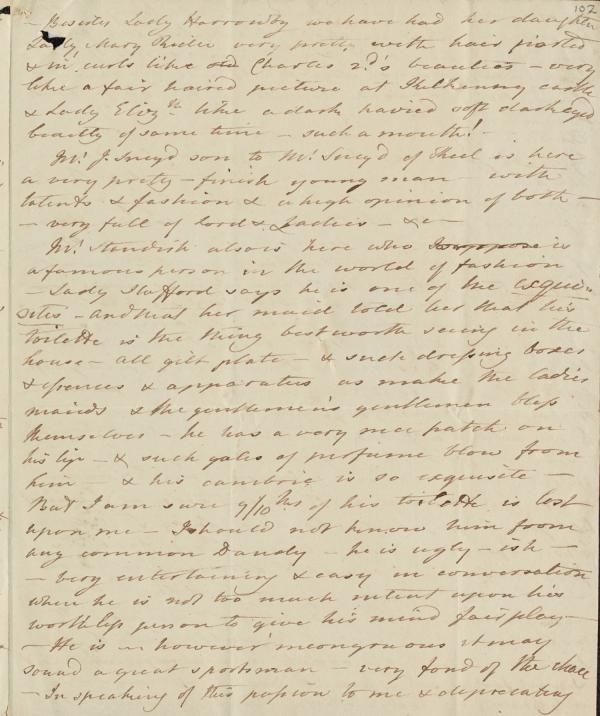 102
– Besides Lady Harrowby we have had her daughter
Lady Mary Ryder very pretty with hair parted
& in curls like old Charles 2d's beauties – very
like a fair haired picture at Kilkenny castle
& Lady Elizth like a dark haired soft dark eyed
beauty of same time – such a mouth! –
Mr J. Sneyd son to Mr Sneyd of Keel is here
a very pretty – finish young man with
talents & fashion & a high opinion of both –
– very full of Lords & Ladies – &c –
Mr Standish also is here who I suppose is
a famous person in the world of fashion
– Lady Stafford says he is one of the exqui-
sites – and that her maid told her that his
toilette is the thing best worth seeing in the
house – all gilt plate – & such dressing boxes
& essences & apparatus as make the ladies
maids & the gentlemen's gentlemen bless
themselves – he has a very nice patch on
his lip – & such gales of perfume blow from
him & his cambric is so exquisite –
But I am sure 9/10ths of his toilette is lost
upon me – I should not know him from
any common Dandy – he is ugly-ish –
– very entertaining & easy in conversation
when he is not too much intent upon his
worthless person to give his mind fair play –
– He is – however incongruous it may
sound a great sportsman – very fond of the chace
– In speaking of this passion to me & deprecating